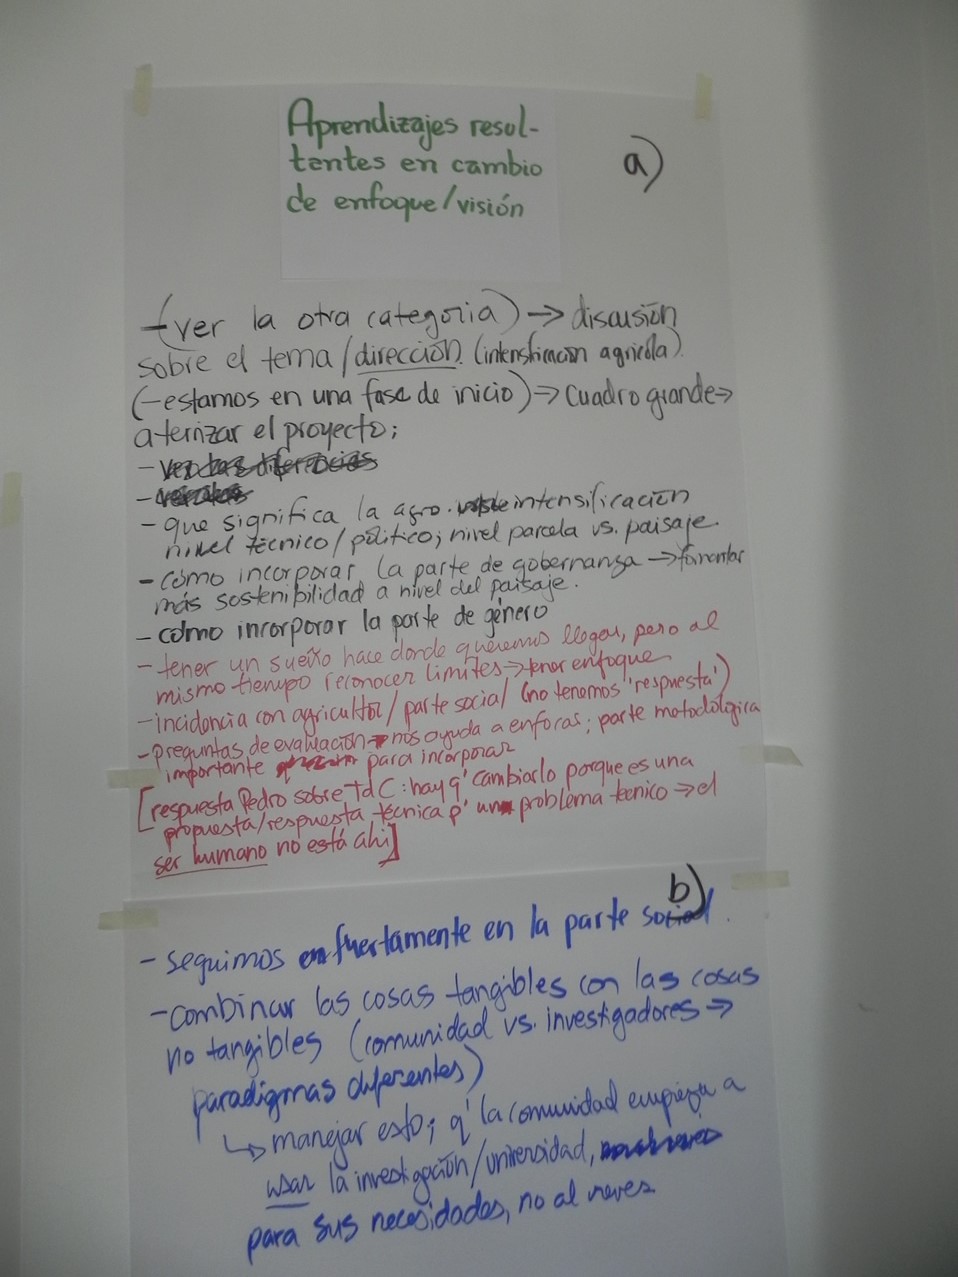 Aprendizajes resul-
tentes en cambio
de enfoque/visión
a)
-(ver la otra categoria) → discusión
sobre el tema/dirección (intensficacion agricola)
(-estamos en una fase de inicio) → Cuadro grande →
aterrizar el proyecto;
- ver las diferencias
-
- que significa la agro. intensificación
nivel técnico/político; nivel parcela vs. paisaje.
- cómo incorporar la parte de gobernanza → fomentar
más sostenibilidad a nivel del paisaje.
- cómo incorporar la parte de género
- tener un sueño hace donde queremos llegar, pero al
mismo tiempo reconocer limites → tener enfoque
- incidencia con agricultor/parte social (no tenemos 'respuesta')
- preguntas de evaluación → nos ayuda a enfocas; parte metodológica
importante para incorporar
[respuesta Pedro sobre TdC: hay q' cambiarlo porque es una
propuesta/respuesta técnica p' un problema tecnico → el
ser humano no está ahi]
b)
- seguimos fuertamente en la parte social.
- combinar las cosas tangibles con las cosas
no tangibles (comunidad vs. investigadores →
paradigmas diferentes)
↳ manejar esto; q' la comunidad empieza a
usar la investigación/universidad,
para sus necesidades, no al reves